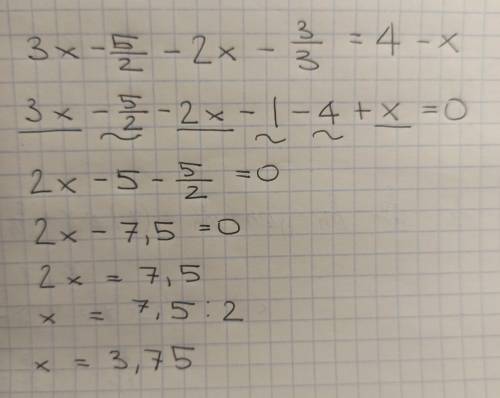 3x - 5/2 - 2x - 3/3 = 4 - x
3x - 5/2 - 2x - 1 - 4 + x = 0
2x - 5 - 5/2 = 0
2x - 7,5 = 0
2x = 7,5
x = 7,5 : 2
x = 3,75